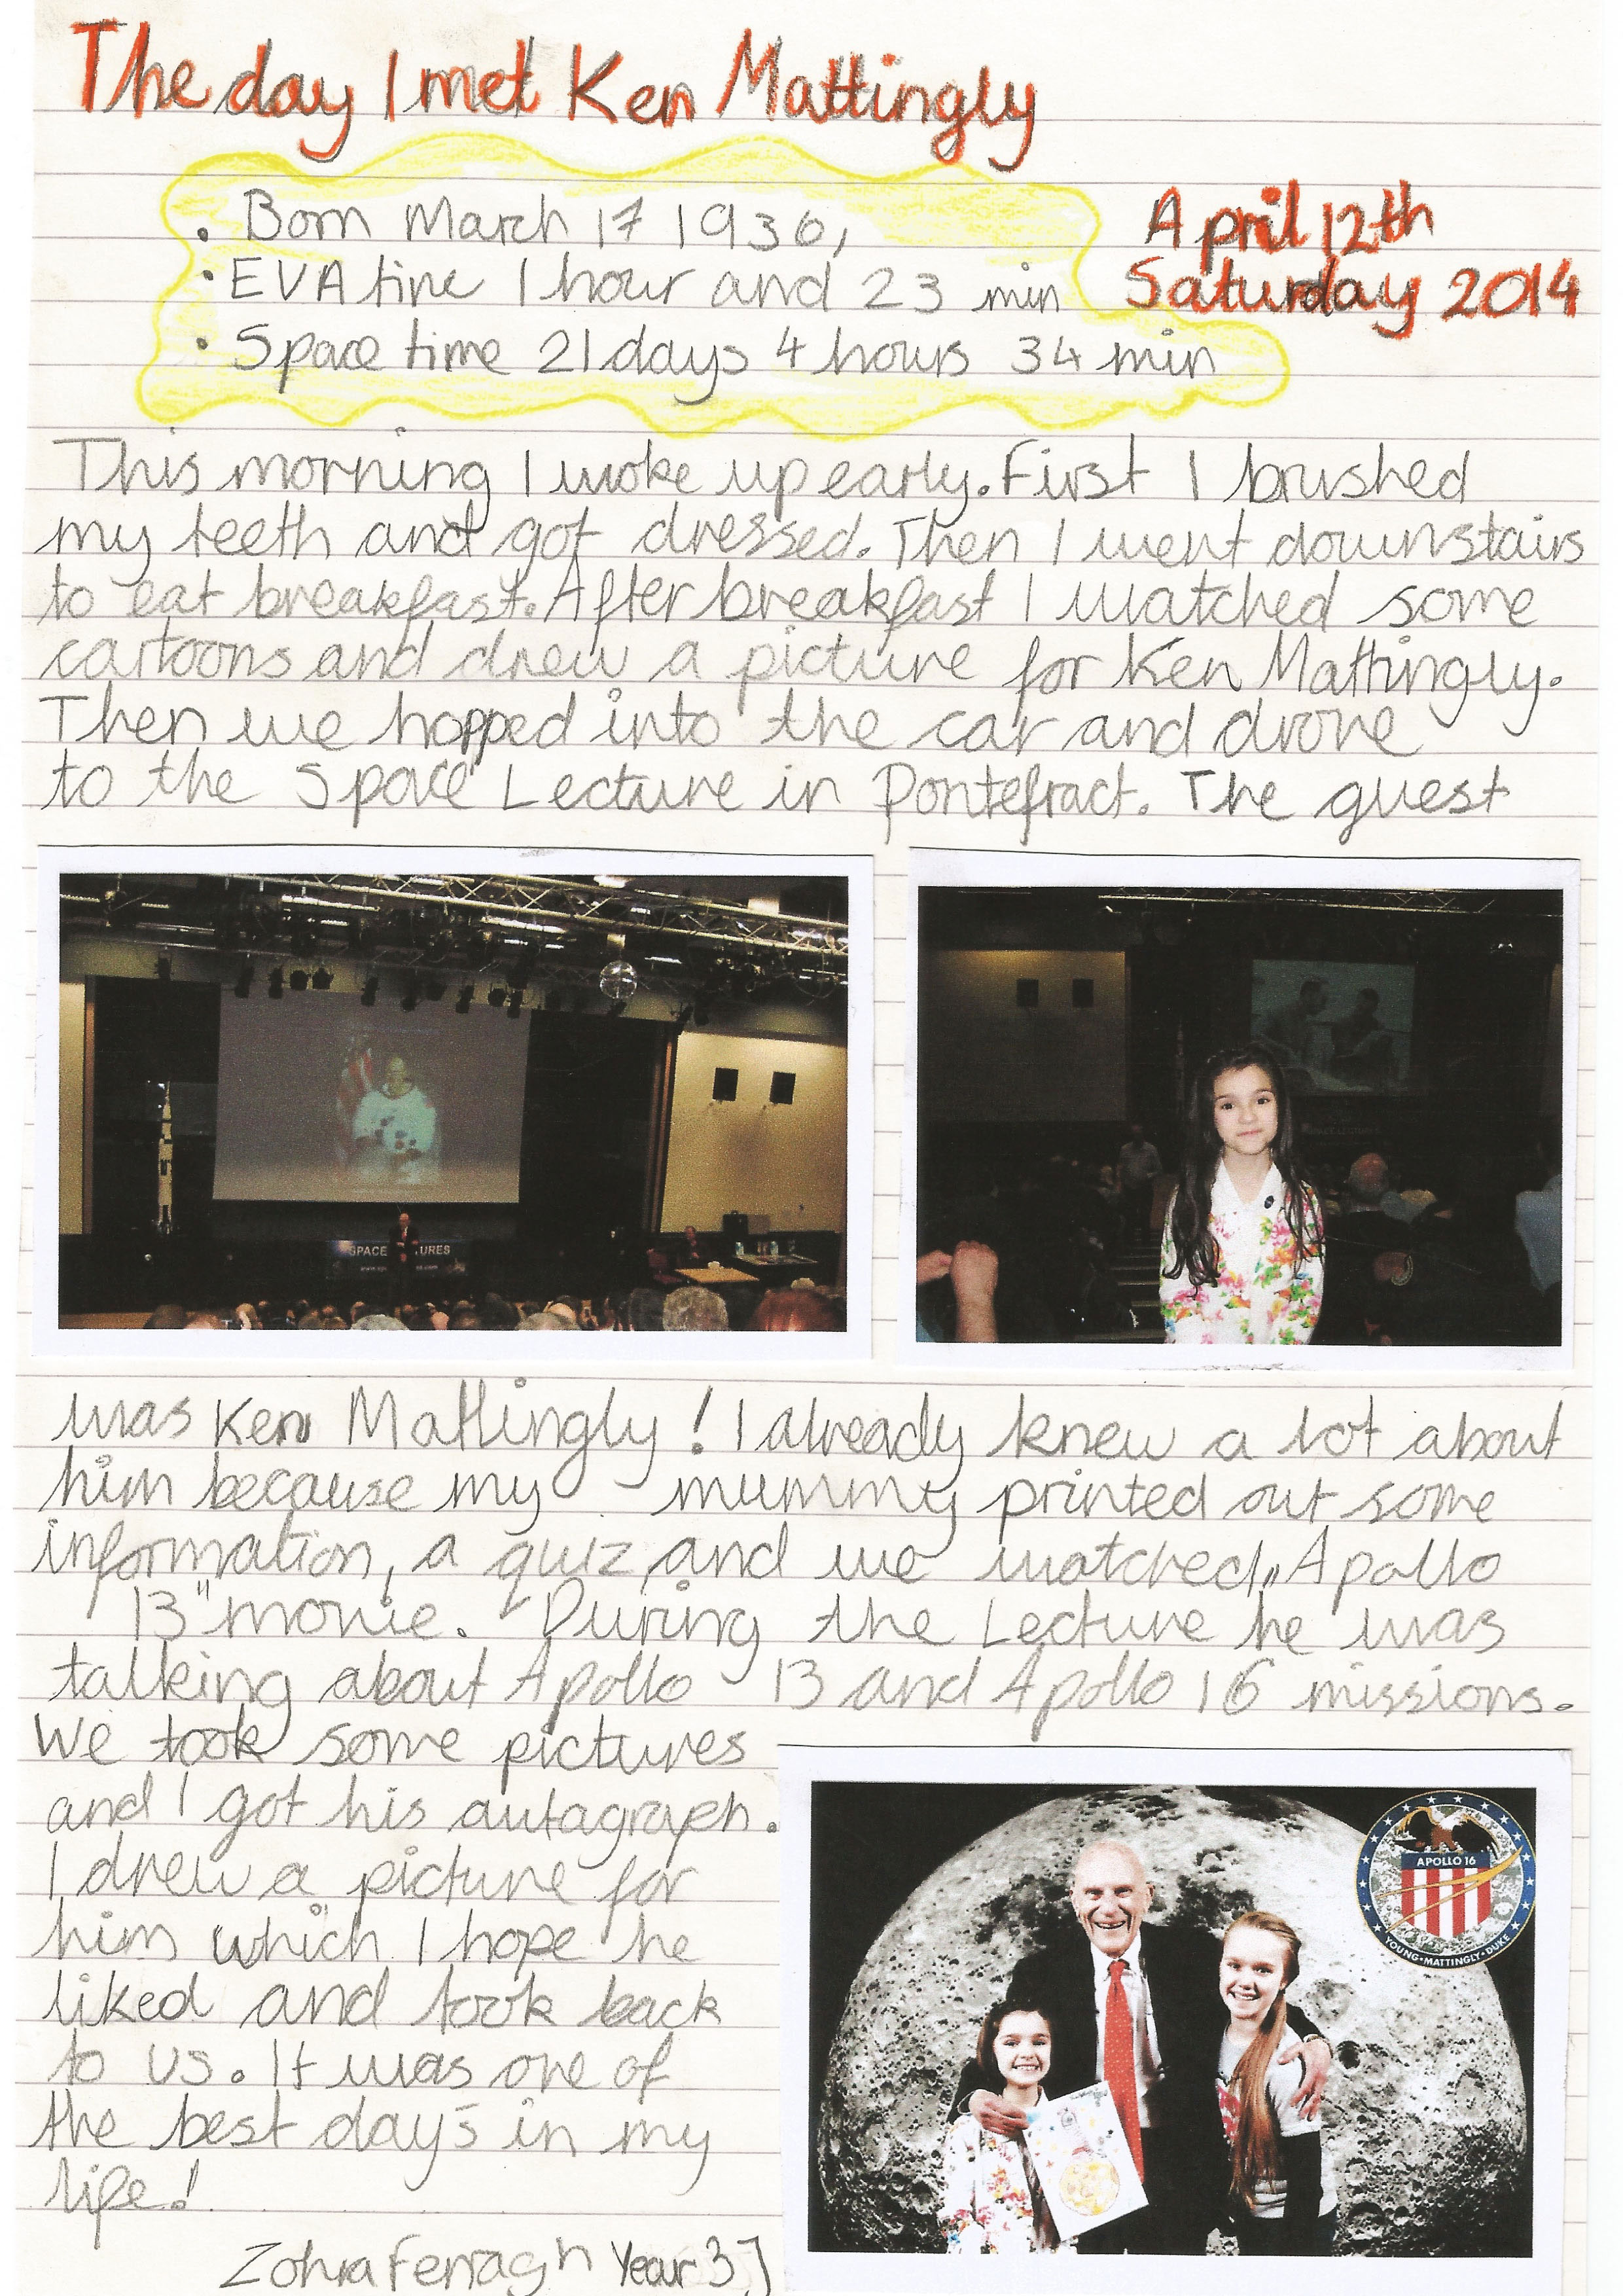 The day I met Ken Mattingly
• Born March 17 1936,
• EVA time 1 hour and 23 min
• Space time 21 days 4 hours 34 min
April 12th
Saturday 2014
This morning I woke up early. First I brushed
my teeth and got dressed. Then I went downstairs
to eat breakfast. After breakfast I watched some
cartoons and drew a picture for Ken Mattingly.
Then we hopped into the car and drove
to the Space Lecture in Pontefract. The guest
SPACE TURES
was Ken Mattingly! I already knew a lot about
him because my mummy printed out some
information, a quiz, and we watched „Apollo
13" movie. During the Lecture he was
talking about Apollo 13 and Apollo 16 missions.
We took some pictures
and I got his autagraph.
I drew a picture for
him which I hope he
liked and took back
to US. It was one of
the best days in my
life!
Zohra Ferragh Year 3J
APOLLO 16
YOUNG • MATTINGLY • DUKE